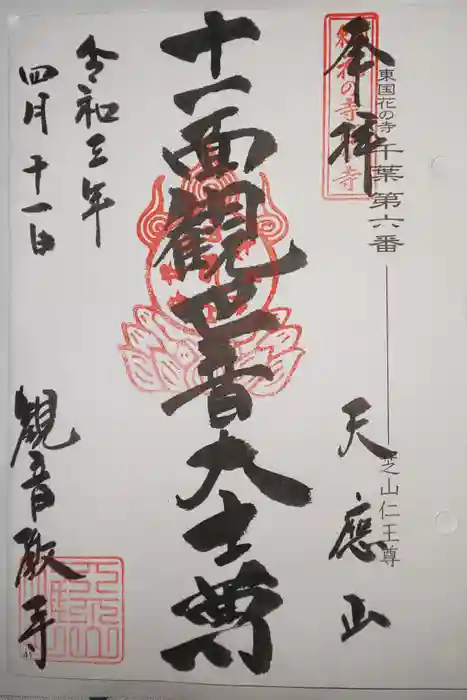 奉拝
東国花の寺 千葉第六番
芝山仁王尊
天應山
十一面観世音大士
令和三年
四月十一日
観音教寺